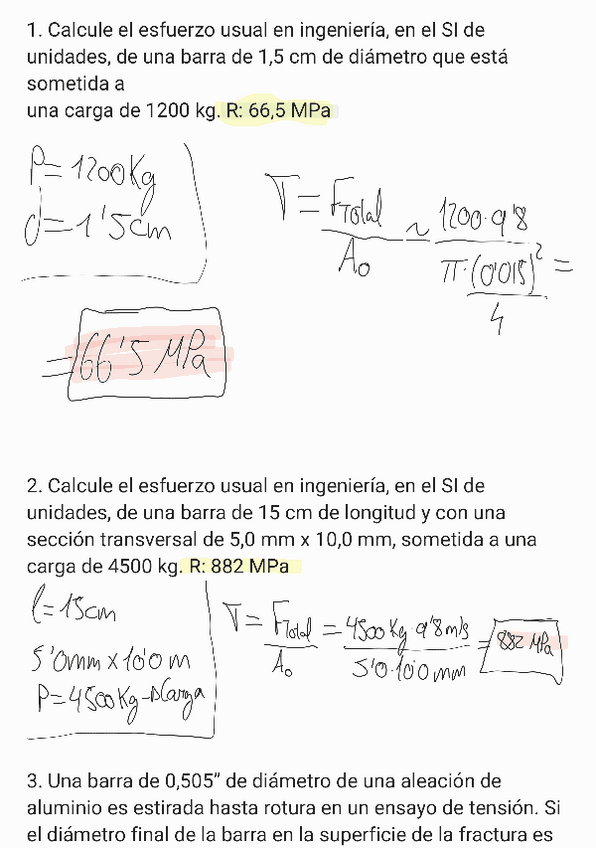 1. Calcule el esfuerzo usual en ingeniería, en el SI de
unidades, de una barra de 1,5 cm de diámetro que está
sometida a
una carga de 1200 kg. R: 66,5 MPa
P = 1200 Kg
d = 1'5 cm
σ = F_Total / A₀ ≈ 1200·9'8 / (π·(0'015)² / 4) =
= 66'5 MPa
2. Calcule el esfuerzo usual en ingeniería, en el SI de
unidades, de una barra de 15 cm de longitud y con una
sección transversal de 5,0 mm x 10,0 mm, sometida a una
carga de 4500 kg. R: 882 MPa
l = 15 cm
5'0mm x 10'0 m
P = 4500 Kg → Carga
σ = F_Total / A₀ = 4500 Kg · 9'8 m/s / 5'0·10'0 mm = 882 MPa
3. Una barra de 0,505” de diámetro de una aleación de
aluminio es estirada hasta rotura en un ensayo de tensión. Si
el diámetro final de la barra en la superficie de la fractura es